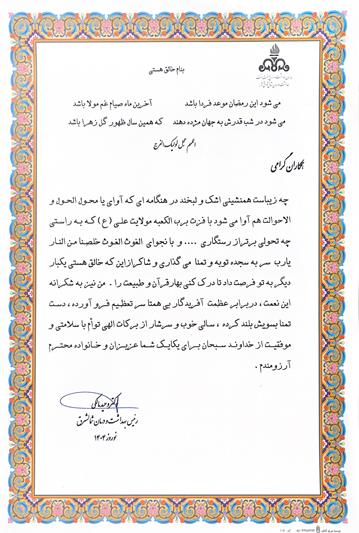 بنام خالق هستی
می شود این رمضان موعد فردا باشد آخرین ماه صیام غم مولا باشد
می شود در شب قدرش به جهان مژده دهند که همین سال ظهور گل زهرا باشد
اللهم عجل لولیک الفرج
همکاران گرامی
چه زیباست همنشینی اشک و لبخند در هنگامه ای که آوای یا محول الحول و
الاحوالت هم آوا می شود با فزت برب الکعبه مولایت علی (ع) که به راستی
چه تحولی برتر از رستگاری .... و با نجوای الغوث الغوث خلصنا من النار
یارب سر به سجده توبه و تمنا می گذاری و شاکر از این که خالق هستی یکبار
دیگر به تو فرصت داد تا درک کنی بهار قرآن و طبیعت را . من نیز به شکرانه
این نعمت ، در برابر عظمت آفریدگار بی همتا سر تعظیم فرو آورده ، دست
تمنا بسویش بلند کرده ، سالی خوب و سرشار از برکات الهی توأم با سلامتی و
موفقیت از خداوند سبحان برای یکایک شما عزیزان و خانواده محترم
آرزومندم .
رئیس بهداشت و درمان شمالشرق
نوروز ۱۴۰۴